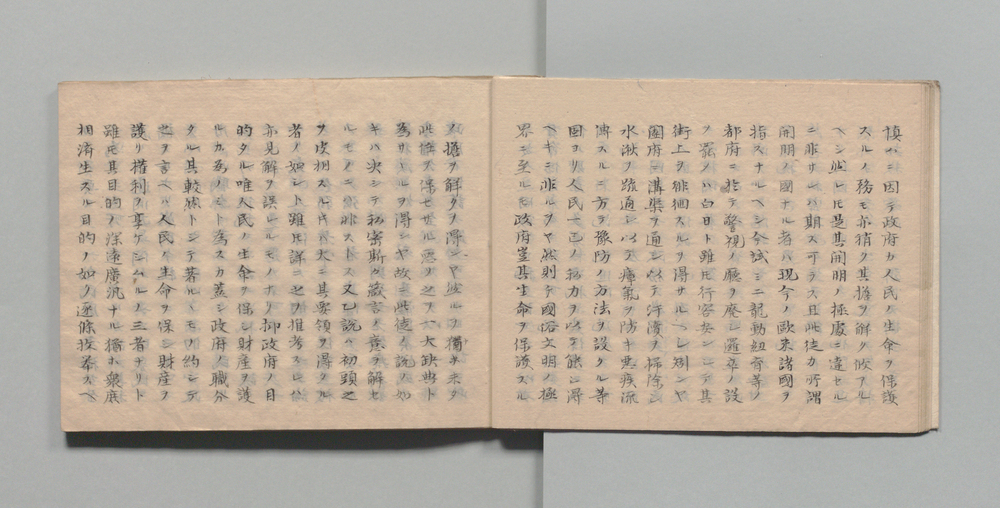 慎ハニ因テ政府カ人民ノ生命ヲ保護
スルノ務モ亦稍ク其擔ヲ解ク
ヘシ然レ𪜈是其開明ノ極度ニ達セル
ニ非サレハ期ス可ラス且此徒カ所謂
開明ノ國ナル者ハ現今ノ歐米諸國ヲ
指スナルヘシ今試ミニ龍動紐育等ノ
都府ニ於テ警視ノ廳ヲ廢シ邏卒ノ設
ヲ罷メハ白日ト雖𪜈行客安シテ其
街上ヲ徘徊スルヲ得サルヘシ別ンヤ
國府ニ溝渠ヲ通シ以テ汗濆ヲ掃除シ
水湫ヲ疏通シ以テ瘴氣ヲ防キ惡疾流
傳スルニ方テ豫防ノ方法ヲ設クル等
固ヨリ人民一己ノ務力ヲ以テ能シ得
ヘキニ非ルヲヤ然則テ國俗文明ノ極
界ニ至ルモ政府豈其生命ヲ保護スル
ノ擔ヲ解クヿ得ンヤ然ルヲ獨ホ未タ
此任ヲ保セサル惡ヲ之ヲ六大缺典ト
為ヿヲ得ンヤ故ニ此徒ノ説ノ如
キハ決シテ政密斯ク箴言ノ義ヲ解セ
ルモノニ非ストス又乙説ハ初頭之
ヲ皮相スル𪜈ハ大ニ其要領ヲ得タル
者ノ如シト雖𪜈詳ニ之ヲ推考スレハ
亦見解ヲ誤レルモノナリ抑政府ノ目
的タル唯人民ノ生命ヲ保シ財産ヲ護
ルカ為ノミト為スカ蓋シ政府ノ職分
タル其較然トシテ著ルキモノ約シテ
之ヲ言ヘハ人民ノ生命ヲ保シ財産ヲ
護リ權利ヲ享ケシムルノ三者ナリト
雖𪜈其目的ノ深遠廣汎ナル獨ホ衆庶
相濟生スル目的ノ如ク逐條枚舉スヘ